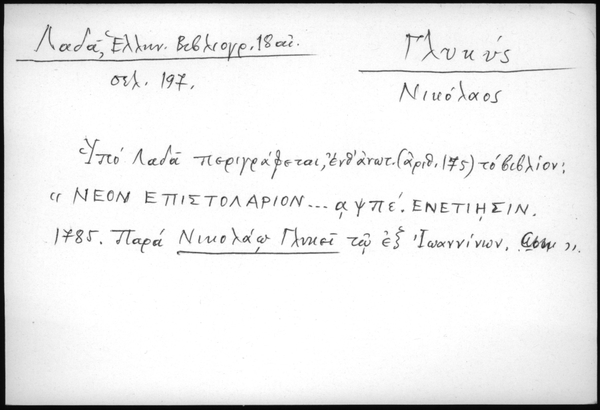 Λαδᾶ, Ἑλλην. Βιβλιογρ. 18 αἰ.
σελ. 197.
Γλυκύς
Νικόλαος
Ὑπό Λαδᾶ περιγράφεται, ἔνθ' ἀνωτ. (ἀριθ. 175) τό βιβλίον:
« ΝΕΟΝ ΕΠΙΣΤΟΛΑΡΙΟΝ... αψπέ. ΕΝΕΤΙῌΣΙΝ.
1785. Παρά Νικολάῳ Γλυκεῖ τῷ ἐξ Ἰωαννίνων. ».